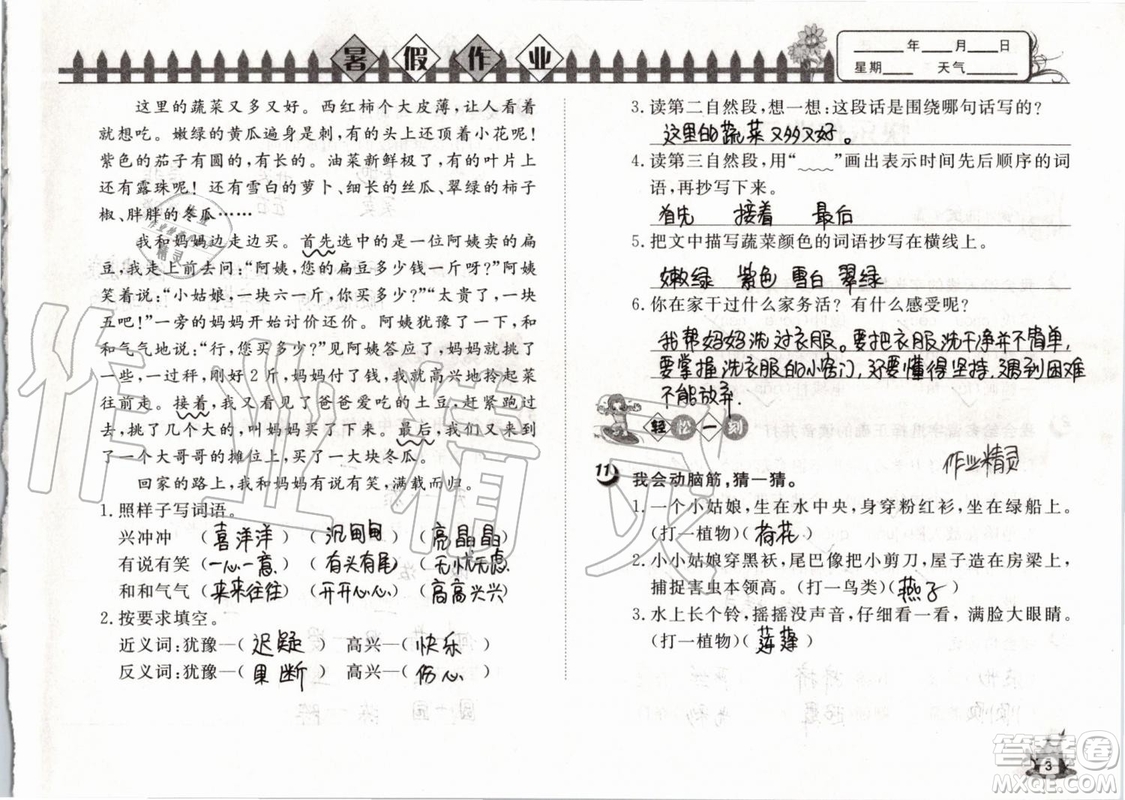 暑假作业
____年____月____日
星期____ 天气______
这里的蔬菜又多又好。西红柿个大皮薄,让人看着
就想吃。嫩绿的黄瓜遍身是刺,有的头上还顶着小花呢!
紫色的茄子有圆的,有长的。油菜新鲜极了,有的叶片上
还有露珠呢!还有雪白的萝卜、细长的丝瓜、翠绿的柿子
椒、胖胖的冬瓜……
我和妈妈边走边看。首先选中的是一位阿姨卖的扁
豆,我走上前去问:“阿姨,您的扁豆多少钱一斤呀?”阿姨
笑着说:“小姑娘,一块六一斤,你买多少?”“太贵了,一块
五吧!”一旁的妈妈开始讨价还价。阿姨犹豫了一下,又
和和气气地说:“行,您买多少?”阿姨答应了,妈妈挑了一
些,一过秤,刚好2斤,妈妈付了钱,我高兴地拎起菜
往前走。接着,我们又看见了爸爸爱吃的土豆,赶紧跑过
去,挑了几个大的,叫妈妈买了下来。最后,我们又到了
一个大哥哥的摊位上,买了一大块冬瓜。
回家的路上,我和妈妈有说有笑,满载而归。
1. 照样子写词语。
兴冲冲 (喜洋洋) (沉甸甸) (亮晶晶)
有说有笑(一心一意) (有头有尾) (无忧无虑)
和和气气(来来往往) (开开心心) (高高兴兴)
2. 按要求填空。
近义词:犹豫—(迟疑) 高兴—(快乐)
反义词:犹豫—(果断) 高兴—(伤心)
3. 读第二自然段,想一想:这段话是围绕哪句话写的?
这里的蔬菜又多又好。
4. 读第三自然段,用“﹏﹏”画出表示时间先后顺序的词
语,再抄写下来。
首先 接着 最后
5. 把文中描写蔬菜颜色的词语抄写在横线上。
嫩绿 紫色 雪白 翠绿
6. 你在家干过什么家务活?有什么感受呢?
我帮妈妈洗过衣服。要把衣服洗干净并不简单,
要掌握洗衣服的小窍门,还要懂得坚持,遇到困难
不能放弃.
轻松一刻
作业精灵
11 我会动脑筋,猜一猜。
1. 一个小姑娘,生在水中央,身穿粉红衫,坐在绿船上。
(打一植物)(荷花)
2. 小小姑娘穿黑袄,尾巴像把小剪刀,屋子造在房梁上,
捕捉害虫本领高。(打一鸟类)(燕子)
3. 水上长个铃,摇摇没声音,仔细看一看,满脸大眼睛。
(打一植物)(莲蓬)
作业精灵
答案圈
MXQE.COM
3